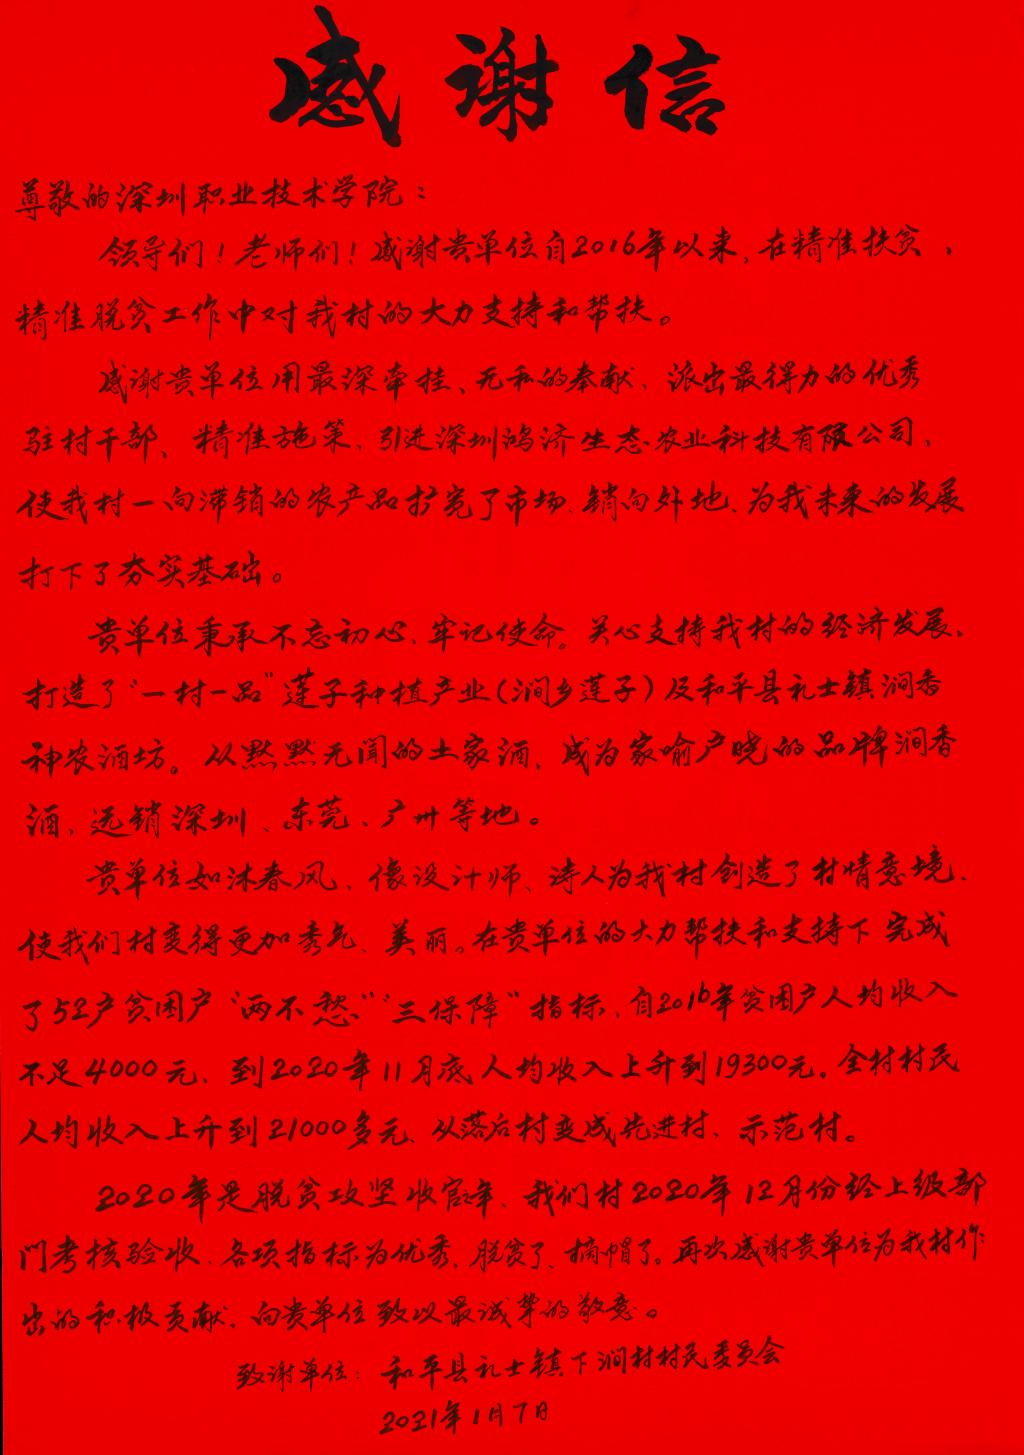 感谢信
尊敬的深圳职业技术学院：
领导们！老师们！感谢贵单位自2016年以来，在精准扶贫、
精准脱贫工作中对我村的大力支持和帮扶。
感谢贵单位用最深牵挂、无私的奉献，派出最得力的优秀
驻村干部、精准施策，引进深圳鸿济生态农业科技有限公司，
使我村一向滞销的农产品扩宽了市场、销向外地、为我未来的发展
打下了夯实基础。
贵单位秉承不忘初心、牢记使命。关心支持我村的经济发展，
打造了“一村一品”莲子种植产业（涧乡莲子）及和平县礼士镇涧香
神农酒坊。从默默无闻的土家酒，成为家喻户晓的品牌涧香
酒，远销深圳、东莞、广州等地。
贵单位如沐春风、像设计师、诗人为我村创造了村情意境，
使我们村变得更加秀气、美丽。在贵单位的大力帮扶和支持下完成
了52户贫困户“两不愁”“三保障”指标，自2016年贫困户人均收入
不足4000元，到2020年11月底人均收入上升到19300元。全村村民
人均收入上升到21000多元、从落后村变成先进村、示范村。
2020年是脱贫攻坚收官年，我们村2020年12月份经上级部
门考核验收、各项指标为优秀，脱贫了、摘帽了。再次感谢贵单位为我村作
出的积极贡献，向贵单位致以最诚挚的敬意。
致谢单位：和平县礼士镇下涧村村民委员会
2021年1月7日